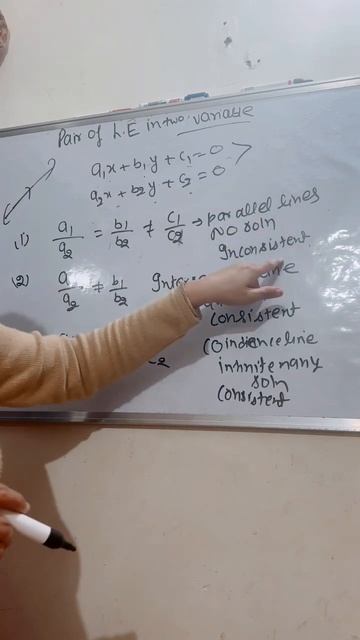 Pair of L.E in two variable
a₁x + b₁y + c₁ = 0
a₂x + b₂y + c₂ = 0
(1) a₁/a₂ = b₁/b₂ ≠ c₁/c₂ → parallel lines
No soln
Inconsistent
(2) a₁/a₂ ≠ b₁/b₂
consistent
Coindence line
c₂ infinite many
soln
consistent